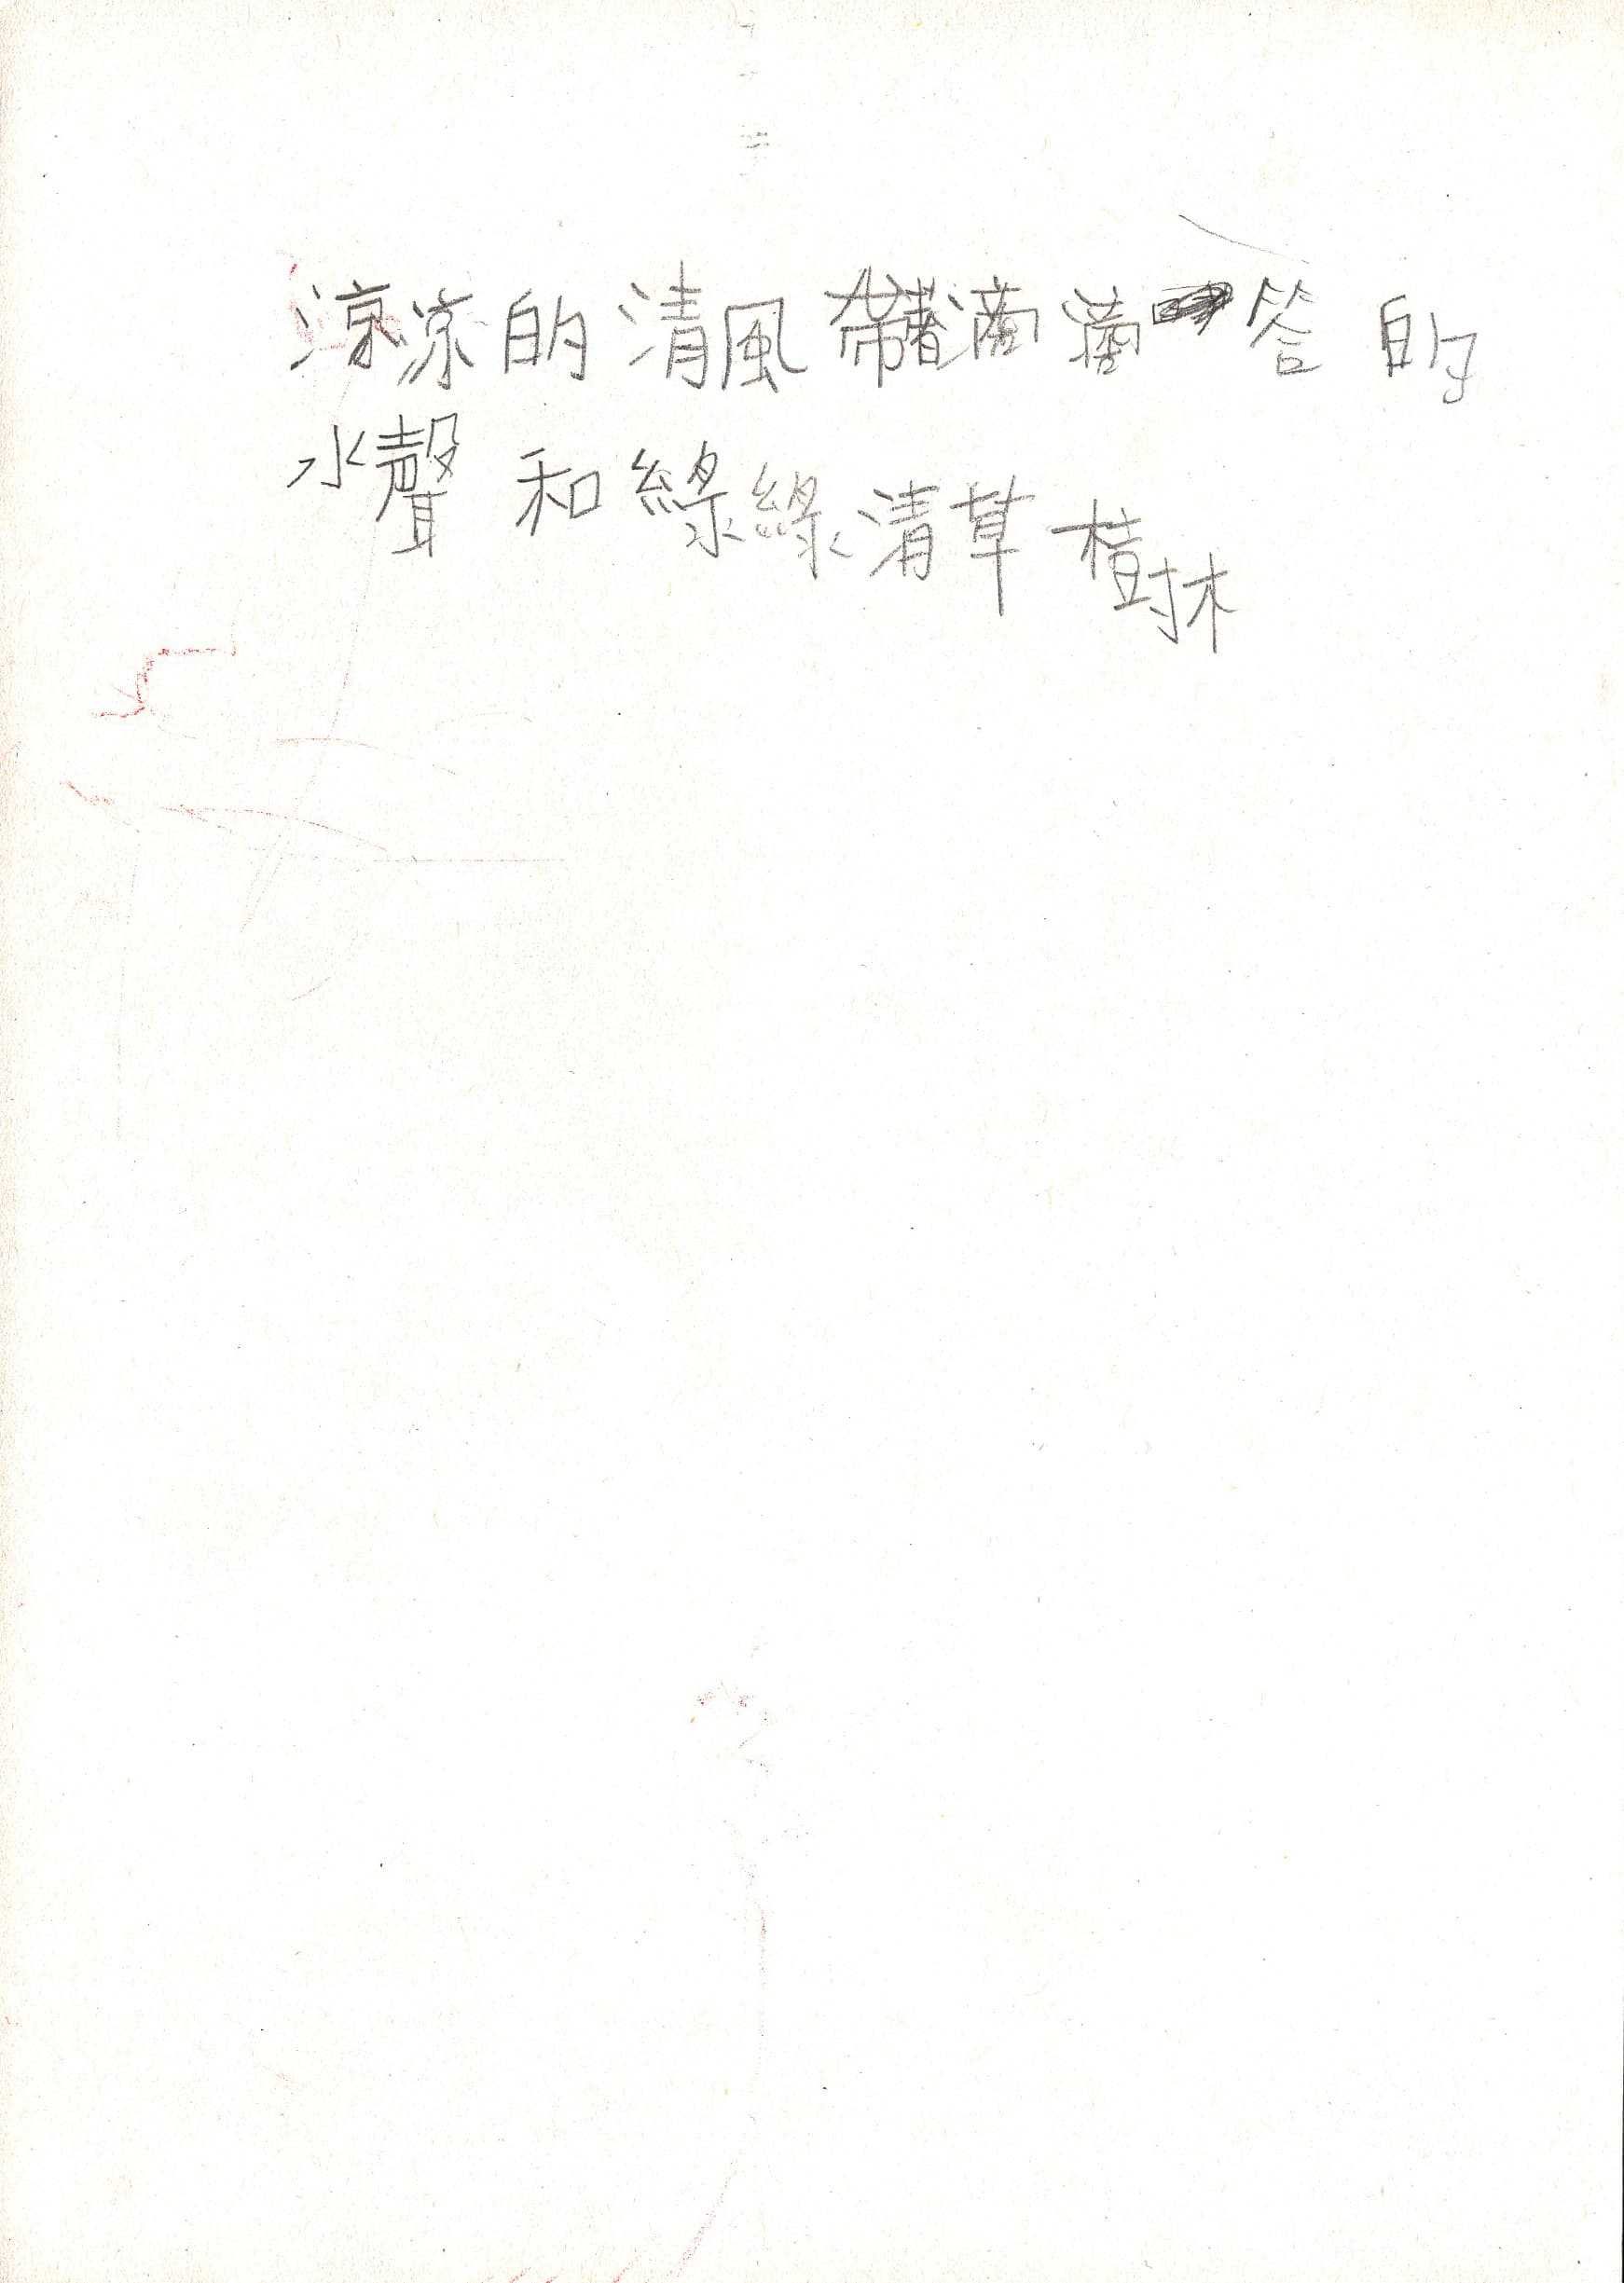 涼涼的清風帶著滴滴答的
水聲和綠綠清草樹林